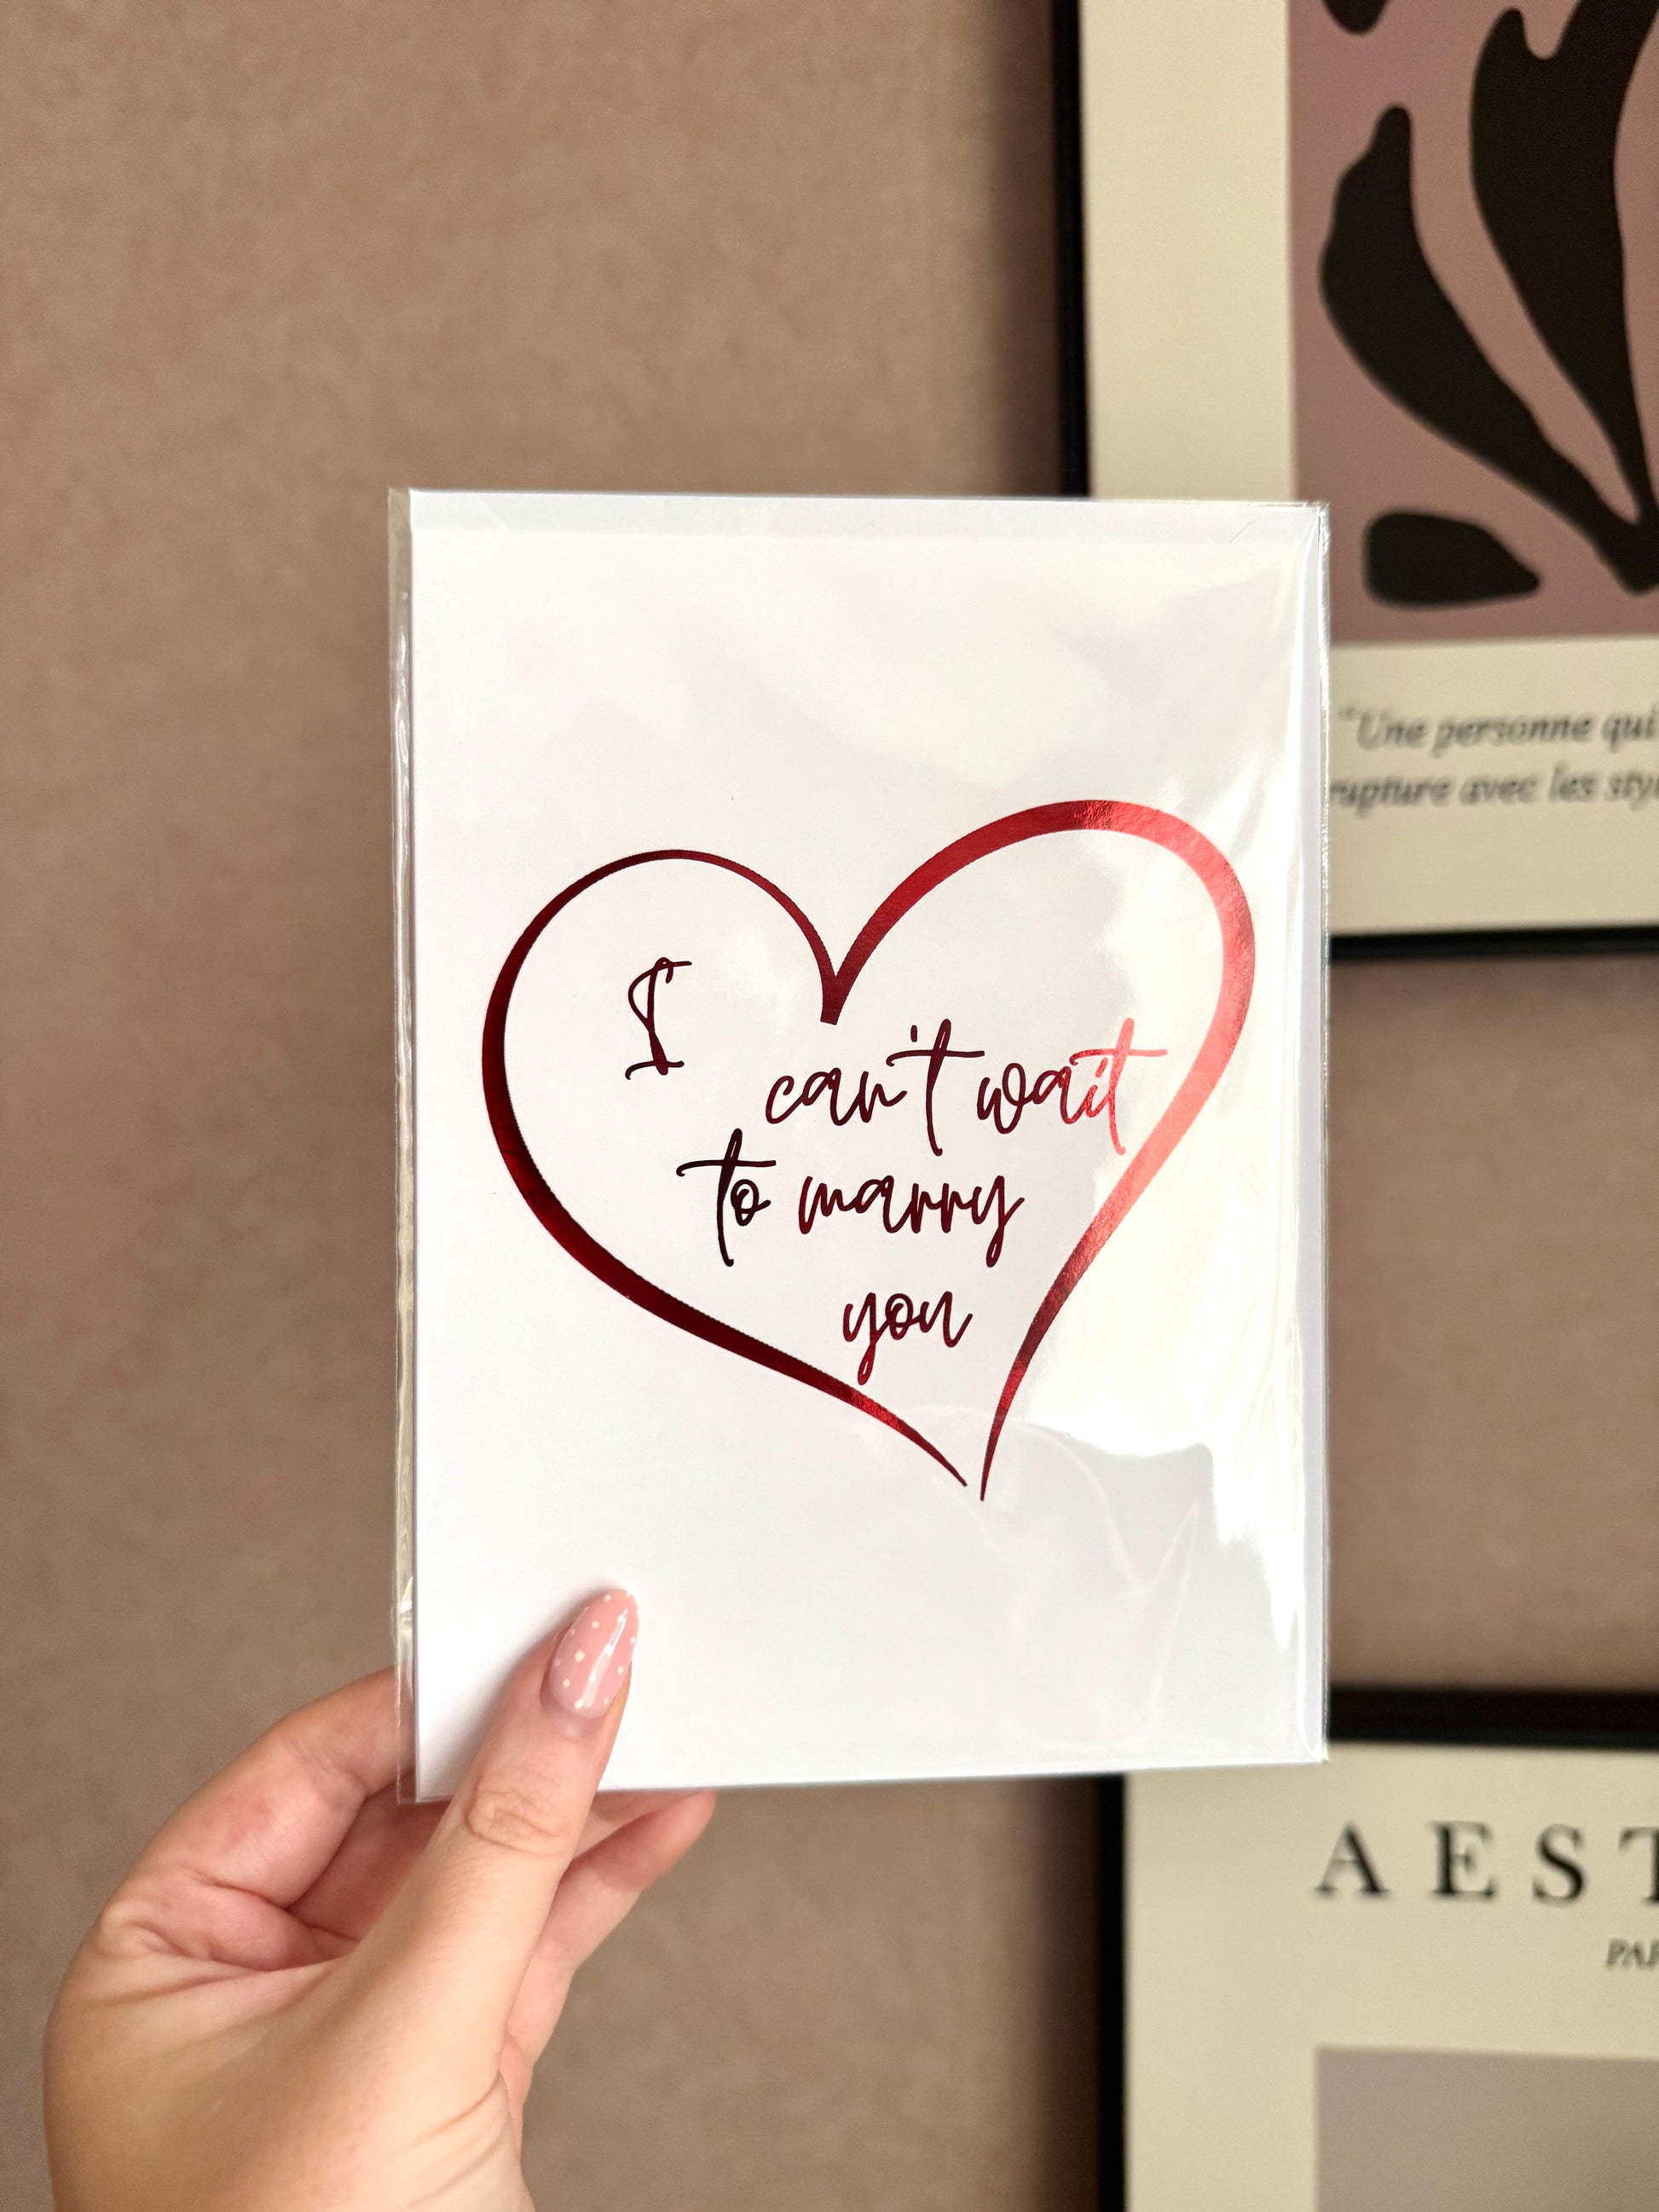 I
can't wait
to marry
you
"Une personne qui
rupture avec les
AEST